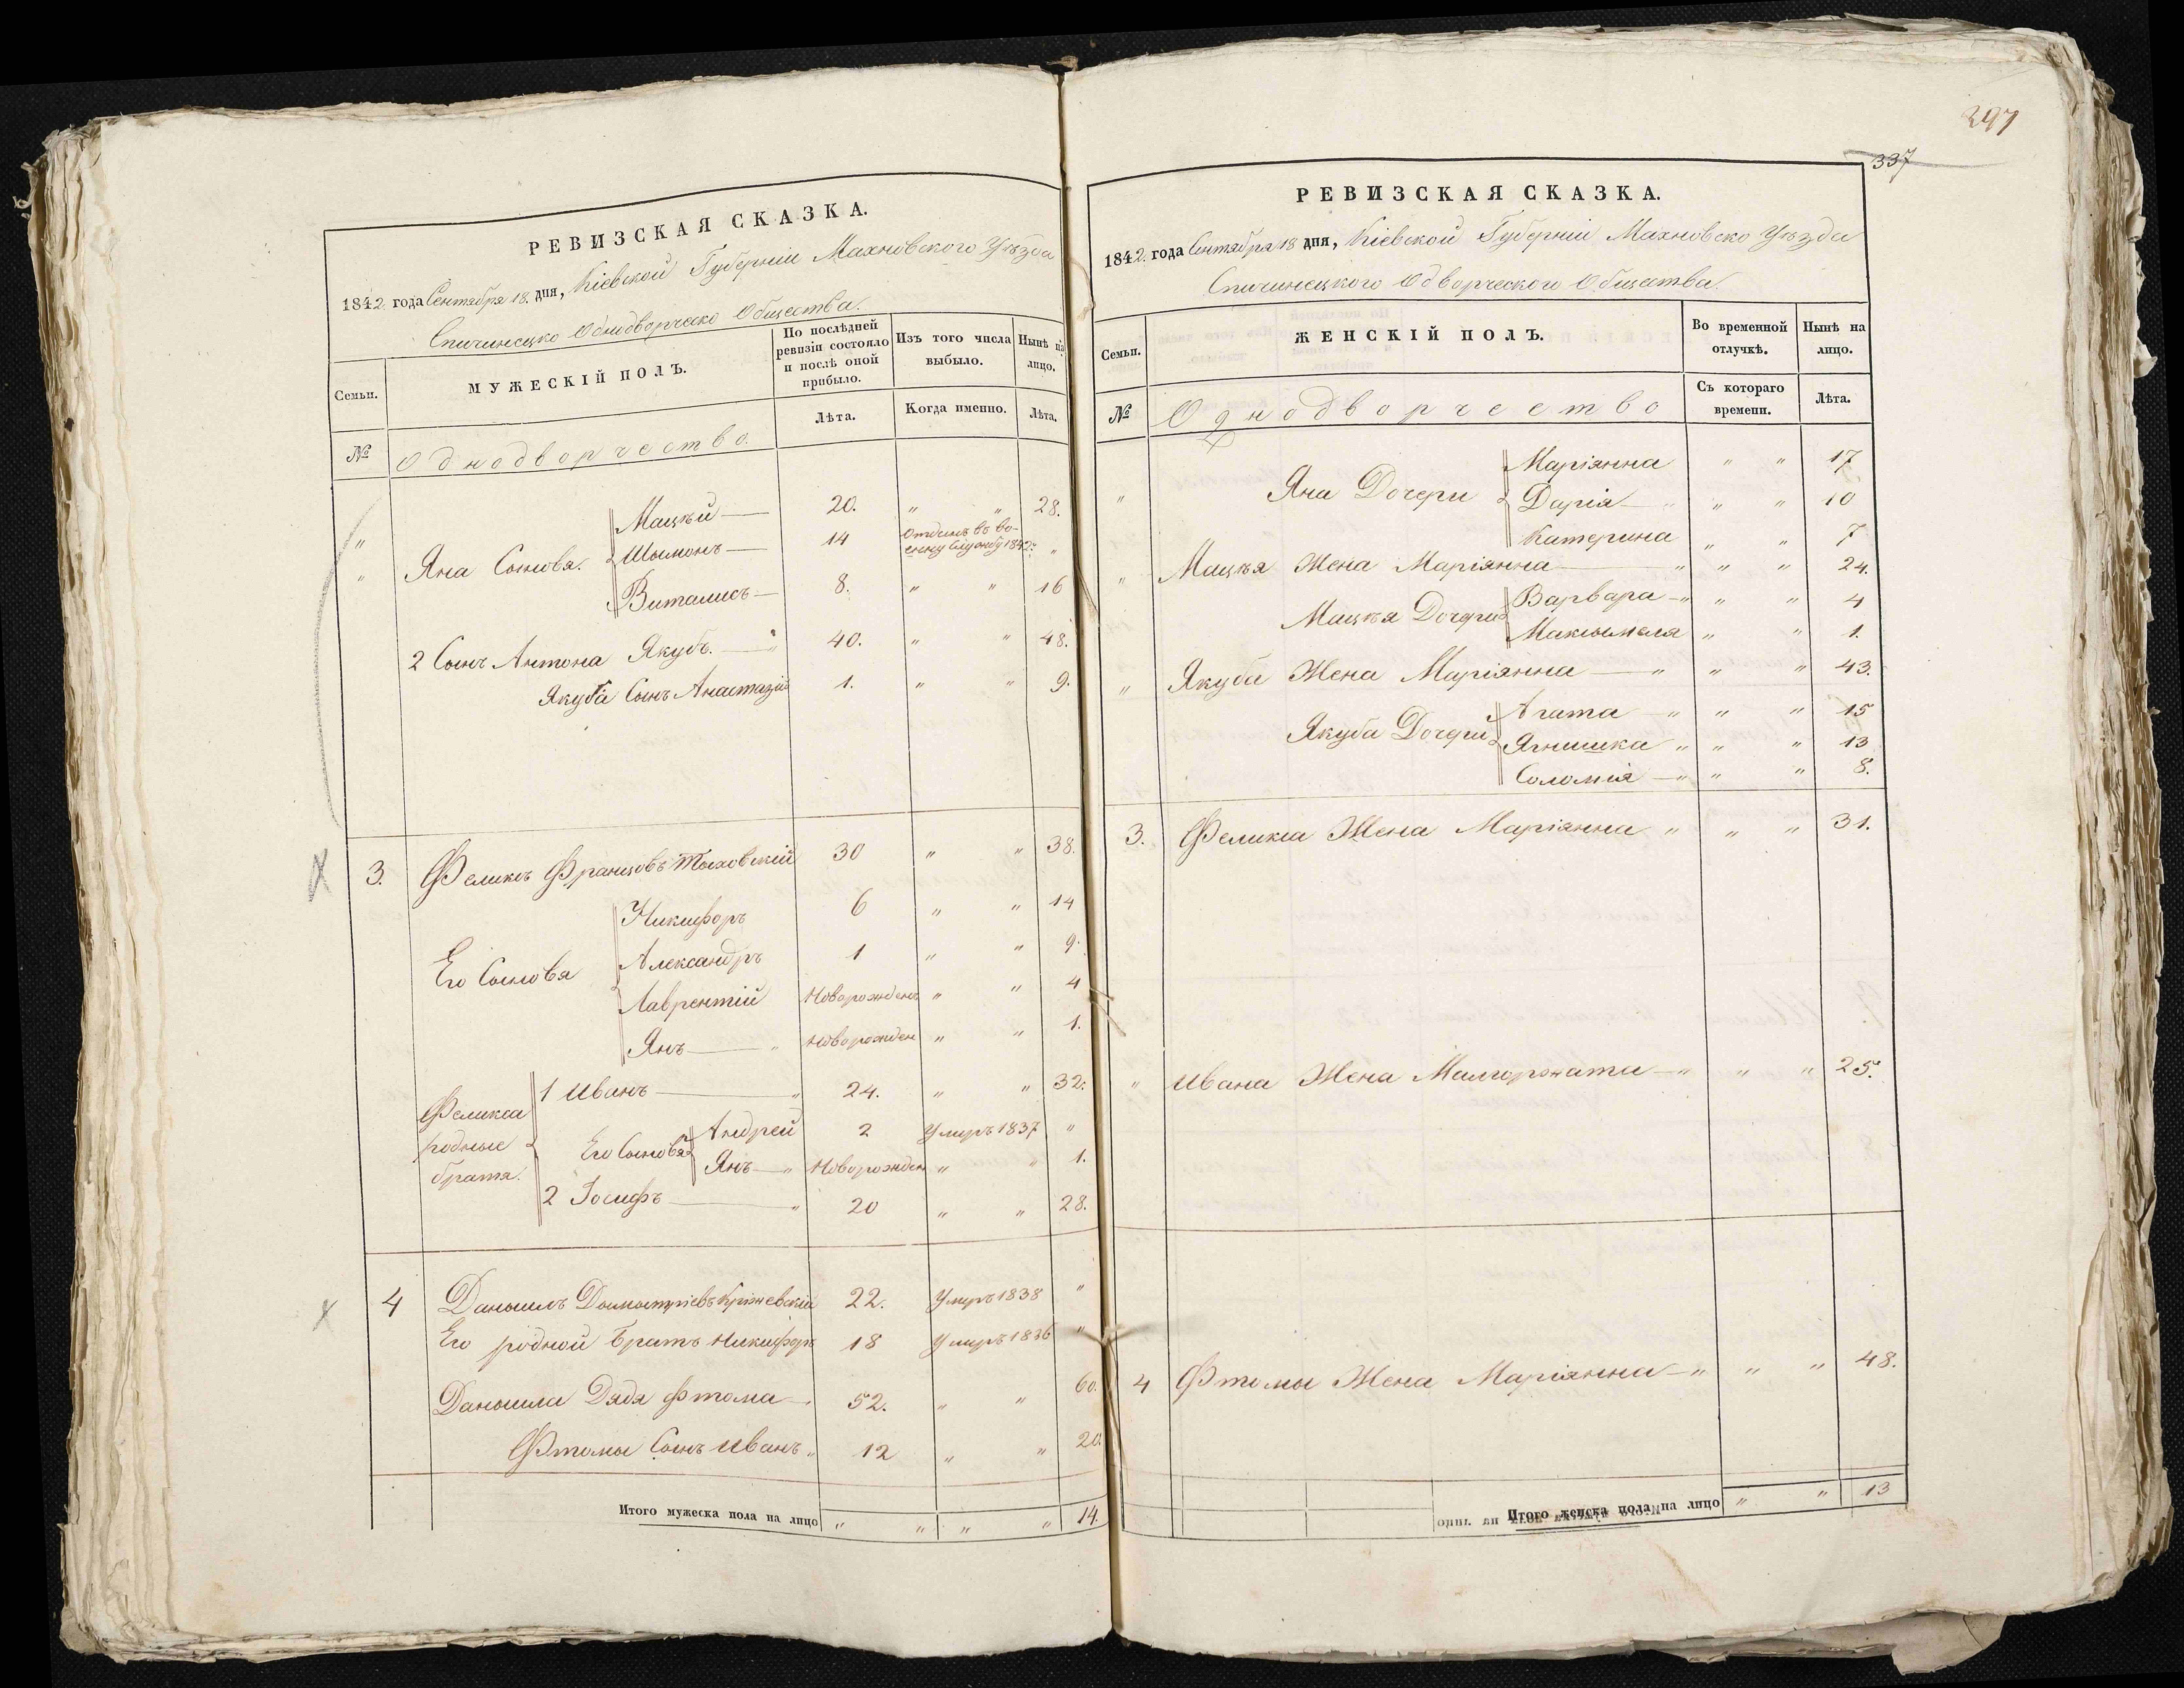 297
337
РЕВИЗСКАЯ СКАЗКА.
1842 года Сентября 18 дня, Кіевской Губерніи Махновского Уѣзда
Спичинецко Однодворческо Общества.
Семьи.
МУЖЕСКІЙ ПОЛЪ.
По послѣдней ревизіи состояло и послѣ оной прибыло.
Изъ того числа выбыло.
Нынѣ на лицо.
Лѣта.
Когда именно.
Лѣта.
№
Однодворчество.
" Яна Сыновья. Мацѣй 20. " " 28.
" Шымонъ 14 Отданъ въ военну службу 1842. "
Виталисъ 8. " " 16
2 Сынъ Антона Якубъ. " 40. " " 48.
Якуба Сынъ Анастазій 1. " " 9.
3. Феликсъ Францовъ 30 " " 38.
Его Сыновья Никифоръ 6 " " 14
Александръ 1 " " 9.
Лаврентій Новорожденъ " " 4
Янъ " Новорожден " " 1.
Феликса родные братя. 1 Иванъ " 24. " " 32.
Его Сыновя Андрей 2 Умеръ 1837 "
Янъ " Новорожден " " 1.
2 Іосифъ " 20 " " 28.
4 Даныилъ 22. Умеръ 1838 "
Его родной братъ Никифоръ 18 Умеръ 1836 "
Даныила Дядя Фтома 52. " " 60.
Фтомы Сынъ Иванъ " 12 " " 20.
Итого мужеска пола на лицо " " " " 14.
РЕВИЗСКАЯ СКАЗКА.
1842. года Сентября 18 дня, Кіевской Губерніи Махновско Уѣзда
Спичинецкого Одворческого Общества.
Семьи.
ЖЕНСКІЙ ПОЛЪ.
Во временной отлучкѣ.
Нынѣ на лицо.
Съ котораго времени.
Лѣта.
№
Однодворчество
" Яна Дочери Маріянна " " 17
Дарія " " " 10
Катерина " " 7
" Мацѣя Жена Маріянна " " " 24.
Мацѣя Дочери Варвара " " " 4
" " 1.
" Якуба Жена Маріянна " " " 43.
Якуба Дочери Агата " " " 15
Ягнишка " " " 13
Соломія " " " 8.
3. Феликса Жена Маріянна " " " 31.
" Ивана Жена Малгоржата " " " 25.
4 Фтомы Жена Маріянна " " " 48.
Итого женска пола на лицо " " 13